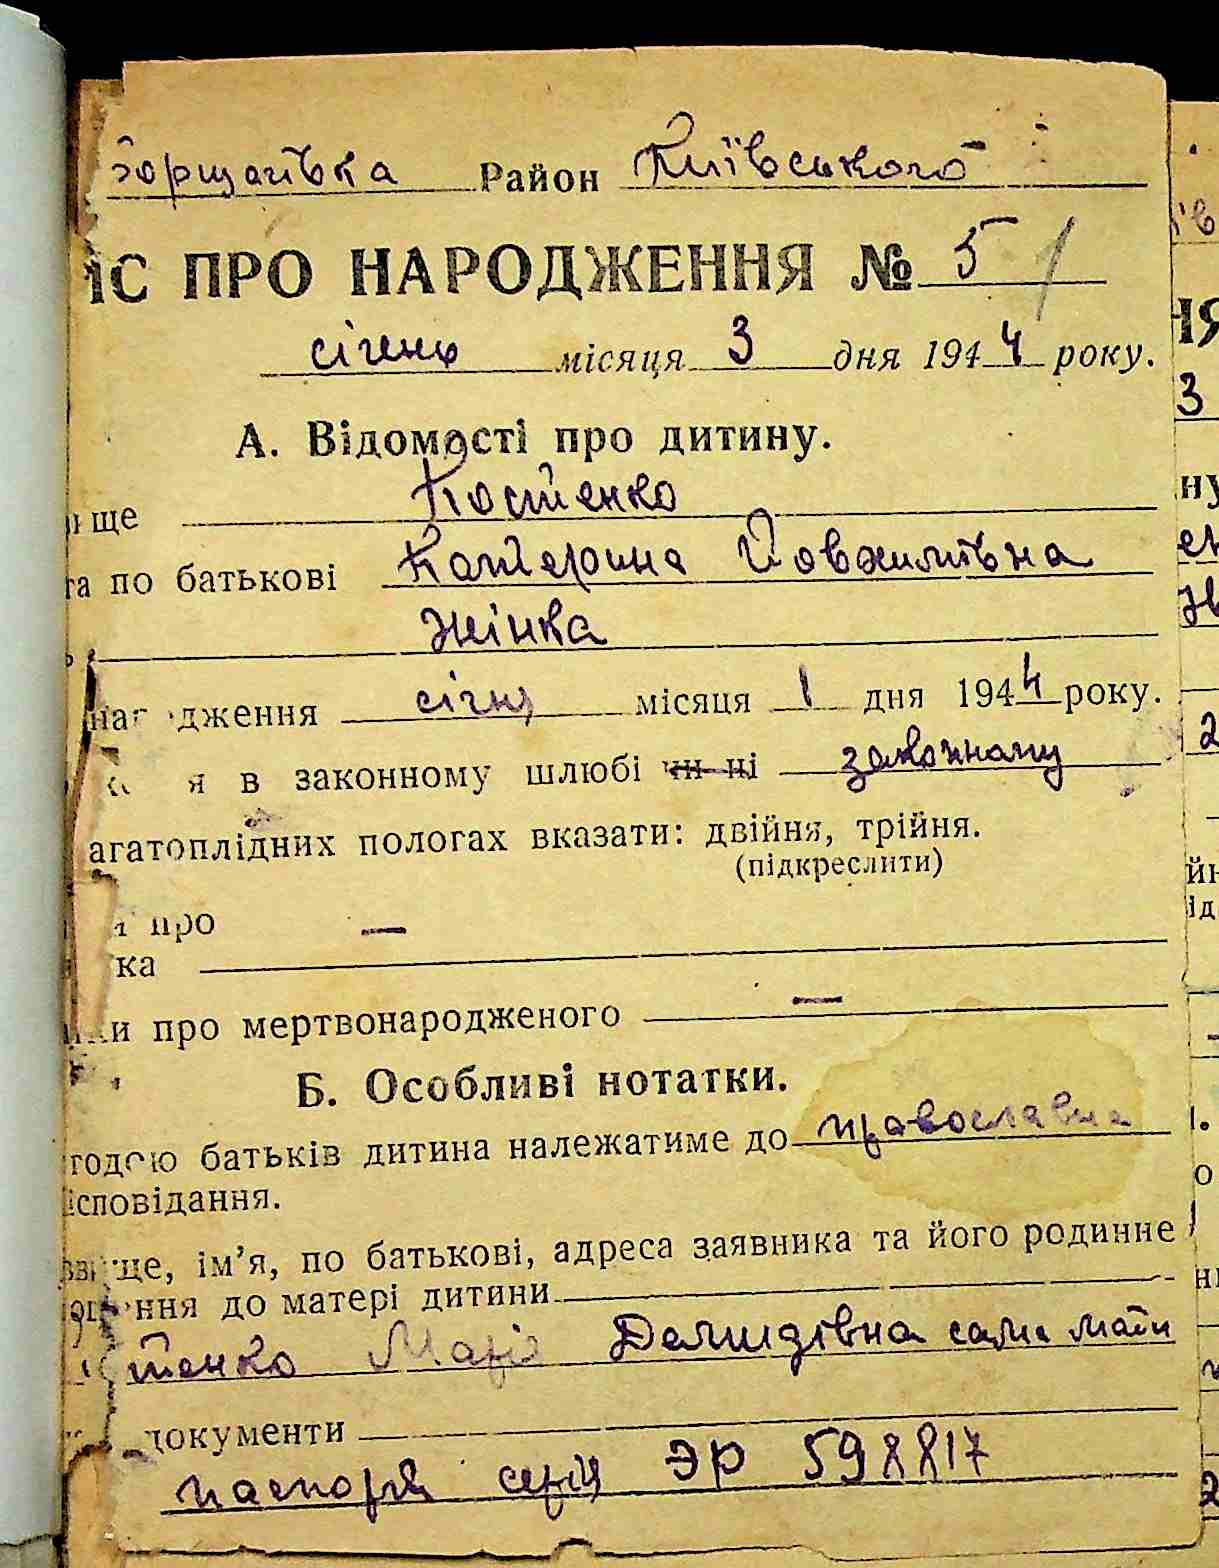 Борщагівка Район Київського
іс ПРО НАРОДЖЕННЯ № 51
січень місяця 3 дня 1944 року.
А. Відомості про дитину.
ще Костенко
та по батькові Катерина Йовхимівна
Жінка
народження січня місяця 1 дня 1944 року.
я в законному шлюбі чи ні законному
агатоплідних пологах вказати: двійня, трійня.
(підкреслити)
про —
ка
ки про мертвонародженого —
Б. Особливі нотатки.
годою батьків дитина належатиме до православне
ісповідання.
ще, ім'я, по батькові, адреса заявника та його родинне
ення до матері дитини
тенко Марія Демидівна сама мати
документи
паспорт серія ЭР 598817